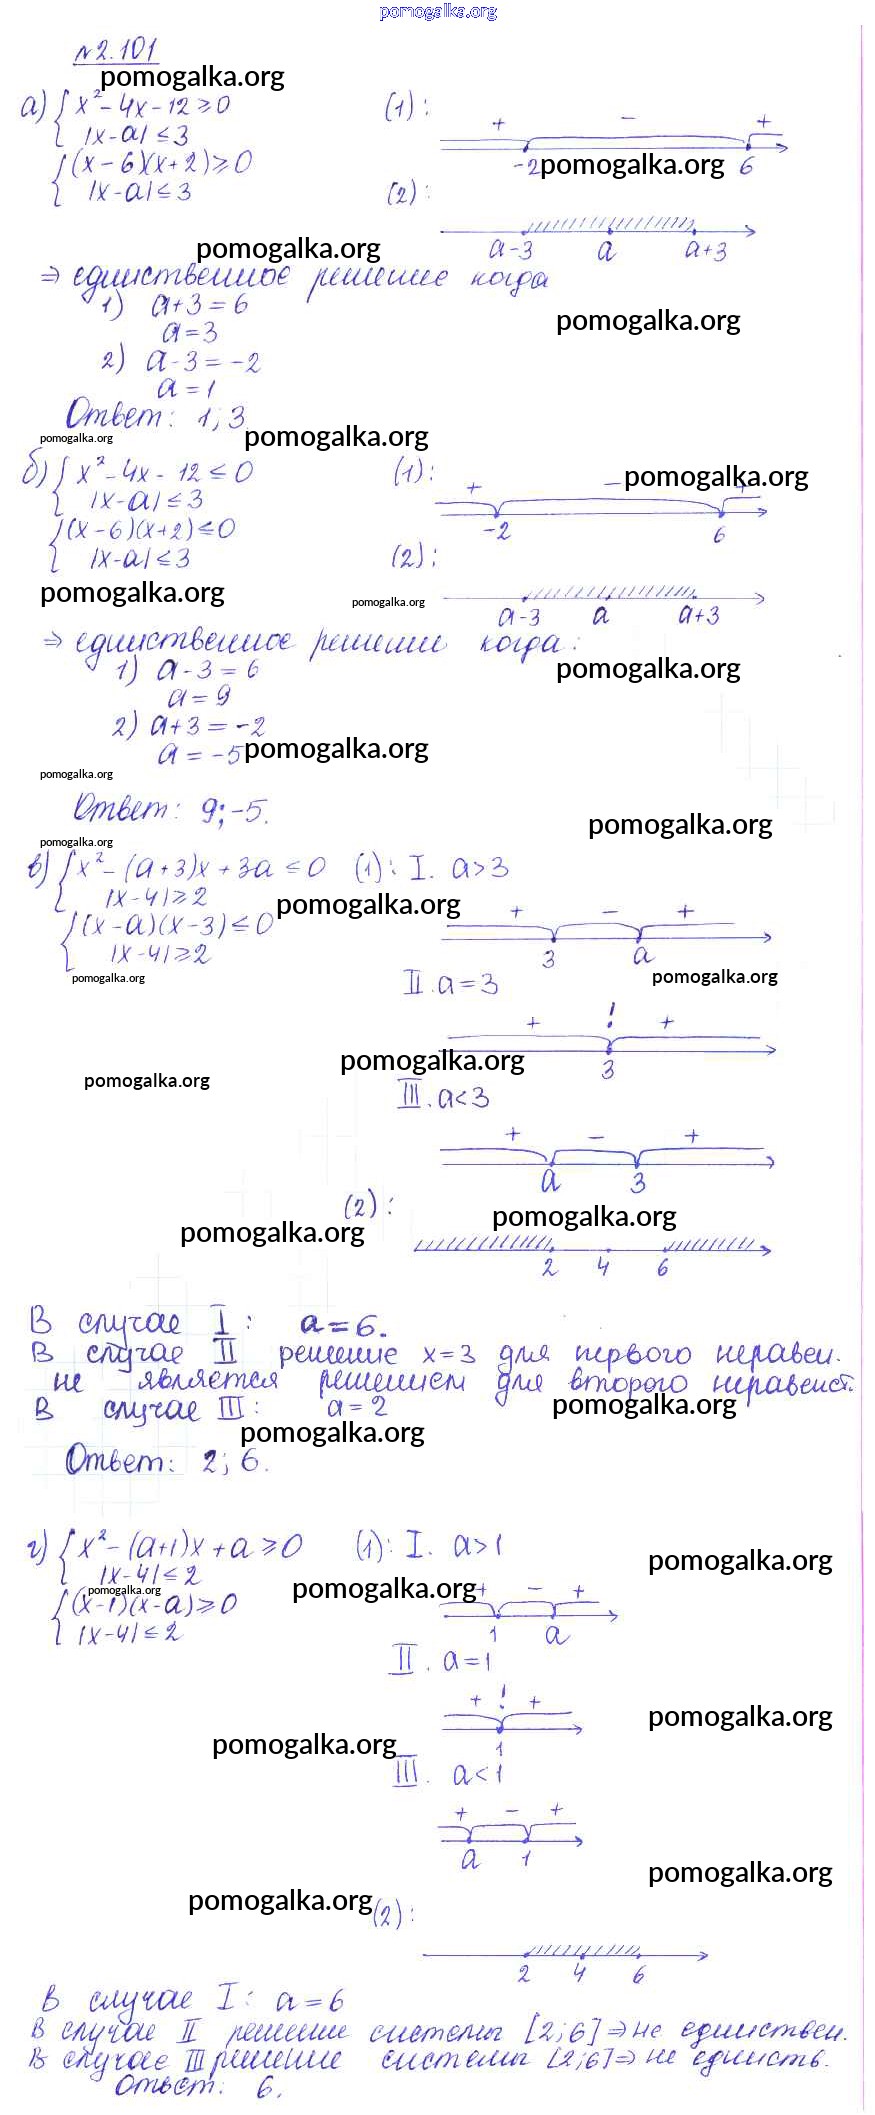 pomogalka.org
№2.101
pomogalka.org
а) { x²-4x-12 ≥ 0 (1):
|x-a| ≤ 3 + - +
{ (x-6)(x+2) ≥ 0 -2 pomogalka.org 6
|x-a| ≤ 3 (2):
pomogalka.org a-3 a a+3
⇒ единственное решение когда
1) a+3=6
pomogalka.org
a=3
2) a-3=-2
a=1
Ответ: 1; 3
pomogalka.org pomogalka.org
б) { x²-4x-12 ≤ 0 (1):
|x-a| ≤ 3 + - pomogalka.org +
{ (x-6)(x+2) ≤ 0 -2 6
|x-a| ≤ 3 (2):
pomogalka.org pomogalka.org a-3 a a+3
⇒ единственное решение когда:
1) a-3=6 pomogalka.org
a=9
2) a+3=-2
a=-5 pomogalka.org
pomogalka.org
Ответ: 9; -5.
pomogalka.org
pomogalka.org
в) { x²-(a+3)x+3a ≤ 0 (1): I. a>3
|x-4| ≥ 2 pomogalka.org + - +
{ (x-a)(x-3) ≤ 0 3 a
|x-4| ≥ 2
pomogalka.org II. a=3 pomogalka.org
+ ! +
pomogalka.org 3
pomogalka.org III. a<3
+ - +
a 3
(2):
pomogalka.org pomogalka.org
2 4 6
В случае I: a=6.
В случае II решение x=3 для первого неравен.
не является решением для второго неравенст.
В случае III: a=2 pomogalka.org
pomogalka.org
Ответ: 2; 6.
г) { x²-(a+1)x+a ≥ 0 (1): I. a>1
|x-4| ≤ 2 pomogalka.org
pomogalka.org pomogalka.org + - +
{ (x-1)(x-a) ≥ 0 1 a
|x-4| ≤ 2
II. a=1
+ ! +
pomogalka.org
pomogalka.org 1
III. a<1
+ - +
a 1
pomogalka.org
pomogalka.org (2):
2 4 6
В случае I: a=6
В случае II решение системы [2;6] ⇒ не единствен.
В случае III решение системы [2;6] ⇒ не единств.
Ответ: 6.